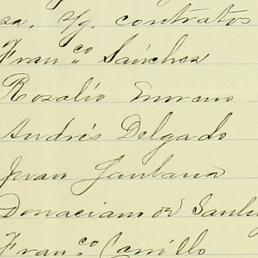 sa. s/g. contratos
Fran.co Sánchez
Rosalío Moreno
Andrés Delgado
Juan Santana
Donaciano
Fran.co Carrillo